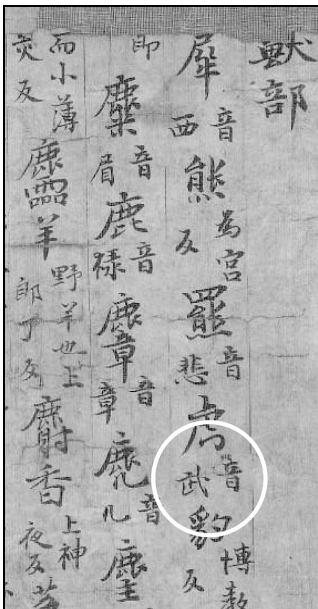 獸部
犀音西熊為宮反羆音悲虎音武豹博教反
即麋音眉鹿音祿麞音章麂音几麈
而小薄反麢羊野羊也上郎丁反麝香上神夜反